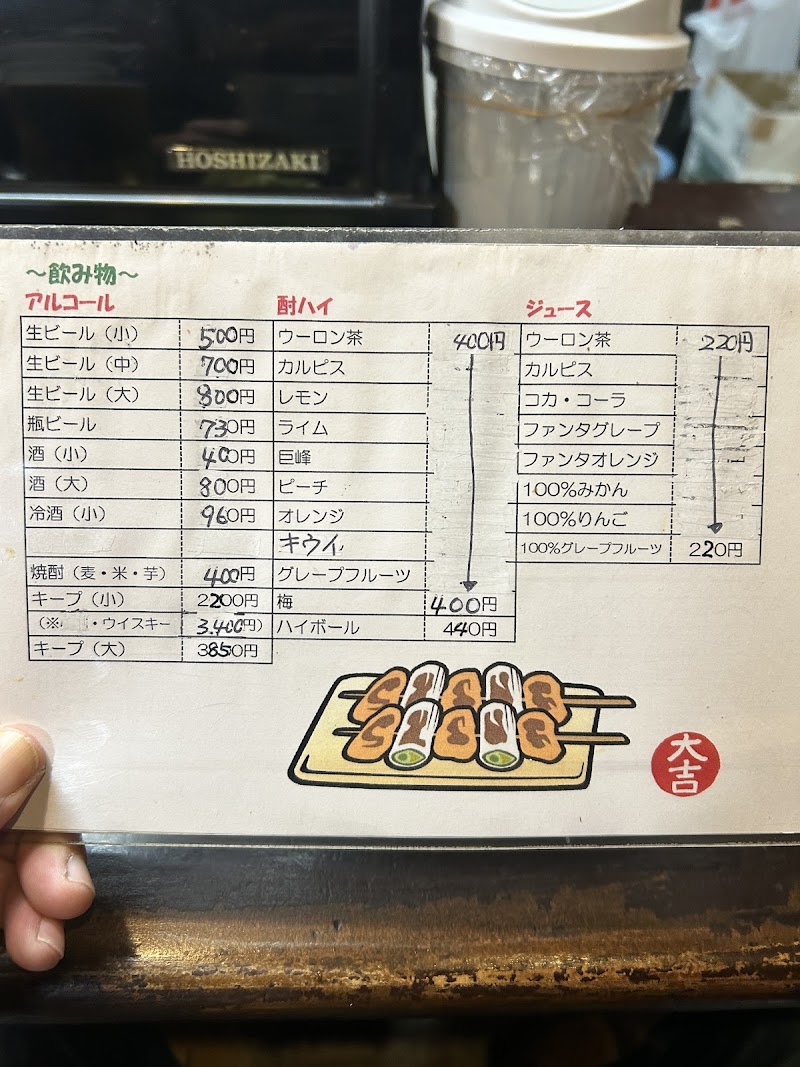 HOSHIZAKI
～飲み物～
アルコール
生ビール（小） 500円
生ビール（中） 700円
生ビール（大） 800円
瓶ビール 730円
酒（小） 400円
酒（大） 800円
冷酒（小） 960円
焼酎（麦・米・芋） 400円
キープ（小） 2200円
（※ ・ウイスキー 3.400円）
キープ（大） 3850円
酎ハイ
ウーロン茶 400円
カルピス
レモン
ライム
巨峰
ピーチ
オレンジ
キウイ
グレープフルーツ
梅 400円
ハイボール 440円
ジュース
ウーロン茶 220円
カルピス
コカ・コーラ
ファンタグレープ
ファンタオレンジ
100%みかん
100%りんご
100%グレープフルーツ 220円
大吉